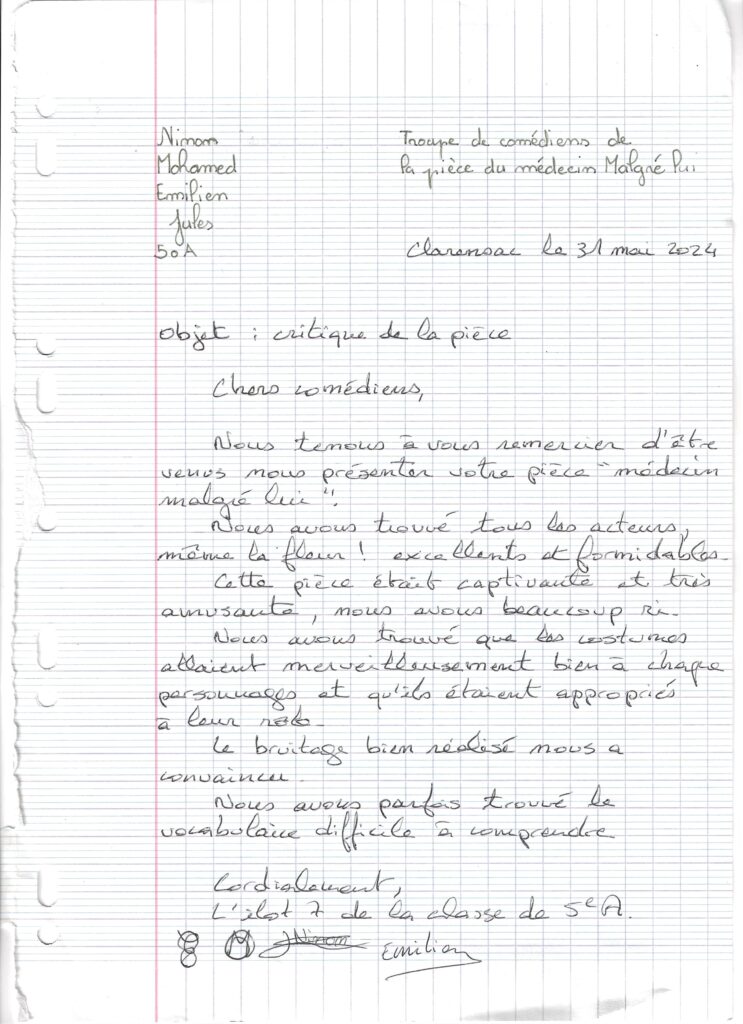 Nimom
Mohamed
Emilien
Jules
50A
Troupe de comédiens de
la pièce du médecin Malgré lui
Clarensac le 31 mai 2024
Objet : critique de la pièce
Chers comédiens,
Nous tenons à vous remercier d'être
venus nous présenter votre pièce "médecin
malgré lui".
Nous avons trouvé tous les acteurs,
même la fleur ! excellents et formidables.
Cette pièce était captivante et très
amusante, nous avons beaucoup ri.
Nous avons trouvé que les costumes
allaient merveilleusement bien à chaque
personnages et qu'ils étaient appropriés
à leur role.
Le bruitage bien réalisé nous a
convaincu.
Nous avons parfois trouvé le
vocabulaire difficile à comprendre
Cordialement,
L'ilot 7 de la classe de 5eA.
M Nimom Emilien